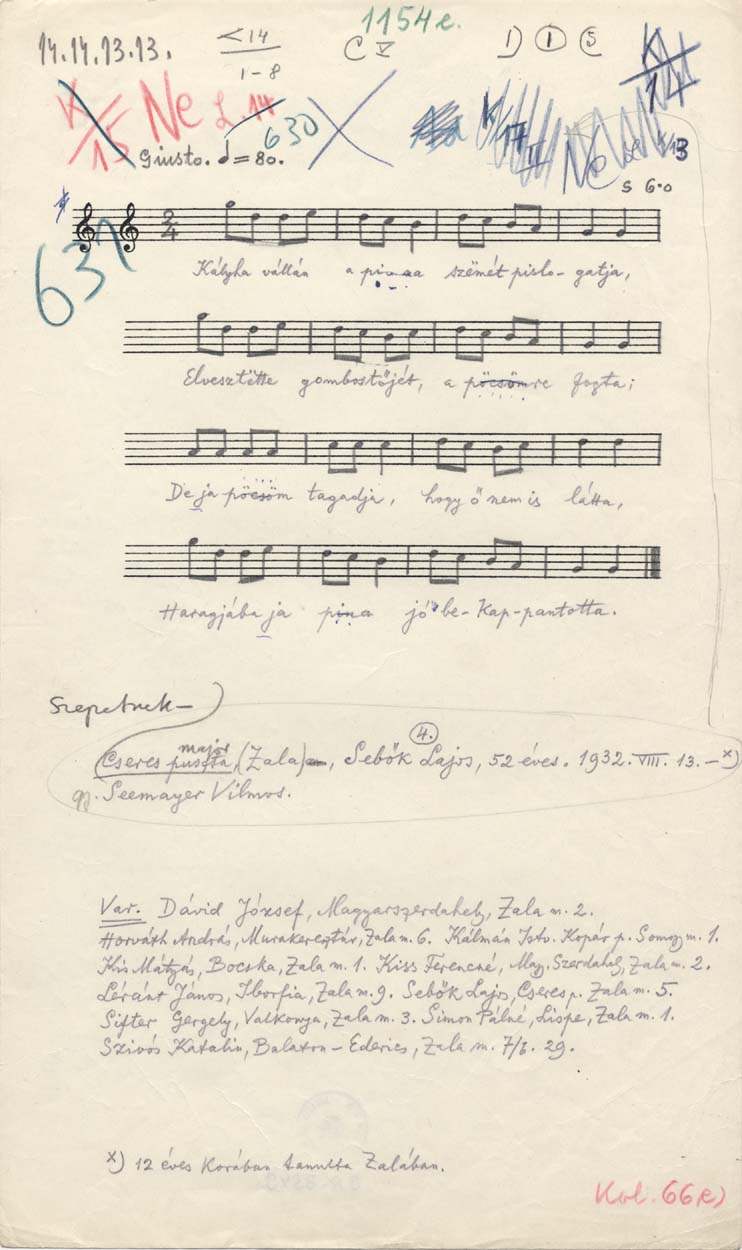 1154e.
14.14.13.13. <14 C V 1) ① ⑤ K/14
1-8
K/15 Ne L.14 630 K/17 II Ne L 13
Giusto. = 80.
S 6·0
637
2/4
Kályha vállán a pinaa szëmét pislo-gatja,
Elvesztëtte gombostőjét, a pöcsömre fogta;
De ja pöcsöm tagadja, hogy ő nem is látta,
Haragjába ja pina jó be-Kap-pantotta.
Szepetnek-
4.
major
Cseres puszta (Zala), Sebők Lajos, 52 éves. 1932. VIII. 13.-x)
gy. Seemayer Vilmos.
Var. Dávid József, Magyarszerdahely, Zala m. 2.
Horváth András, Murakeresztúr, Zala m. 6. Kálmán Istv. Kopár p. Somogy m. 1.
Kis Mátyás, Bocska, Zala m. 1. Kiss Ferencné, Magy. Szerdahely, Zala m. 2.
Léránt János, Iborfia, Zala m. 9. Sebők Lajos, Cseres p. Zala m. 5.
Sifter Gergely, Valkonya, Zala m. 3. Simon Pálné, Lispe, Zala m. 1.
Szivós Katalin, Balaton-Ederics, Zala m. 7/b. 29.
x) 12 éves Korában tanulta Zalában.
Kol. 66e)